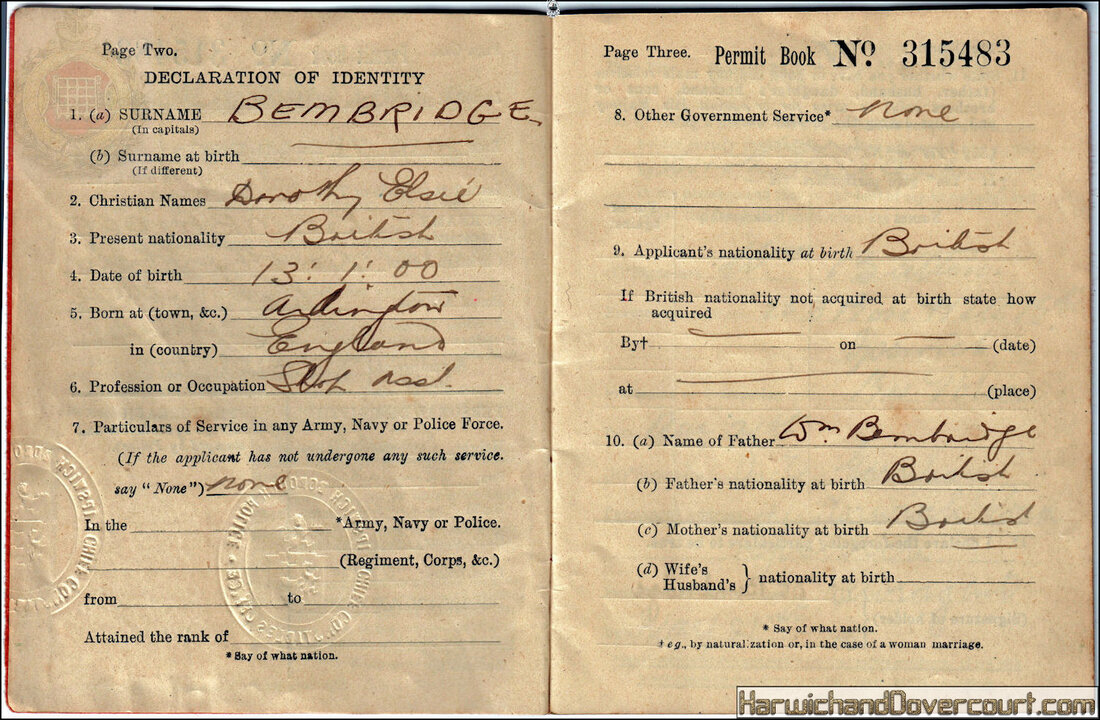 Page Two.
DECLARATION OF IDENTITY
1. (a) SURNAME BEMBRIDGE
(In capitals)
(b) Surname at birth
(If different)
2. Christian Names Dorothy Elsie
3. Present nationality British
4. Date of birth 13 : 1 : 00
5. Born at (town, &c.)
in (country) England
6. Profession or Occupation Shop Asst.
7. Particulars of Service in any Army, Navy or Police Force.
(If the applicant has not undergone any such service.
say "None") none
In the *Army, Navy or Police.
(Regiment, Corps, &c.)
from to
Attained the rank of
* Say of what nation.
Page Three. Permit Book No. 315483
8. Other Government Service* none
9. Applicant's nationality at birth British
If British nationality not acquired at birth state how
acquired
By† on (date)
at (place)
10. (a) Name of Father Wm Bembridge
(b) Father's nationality at birth British
(c) Mother's nationality at birth British
(d) Wife's
Husband's } nationality at birth
* Say of what nation.
† eg., by naturalization or, in the case of a woman marriage.
HarwichandDovercourt.com